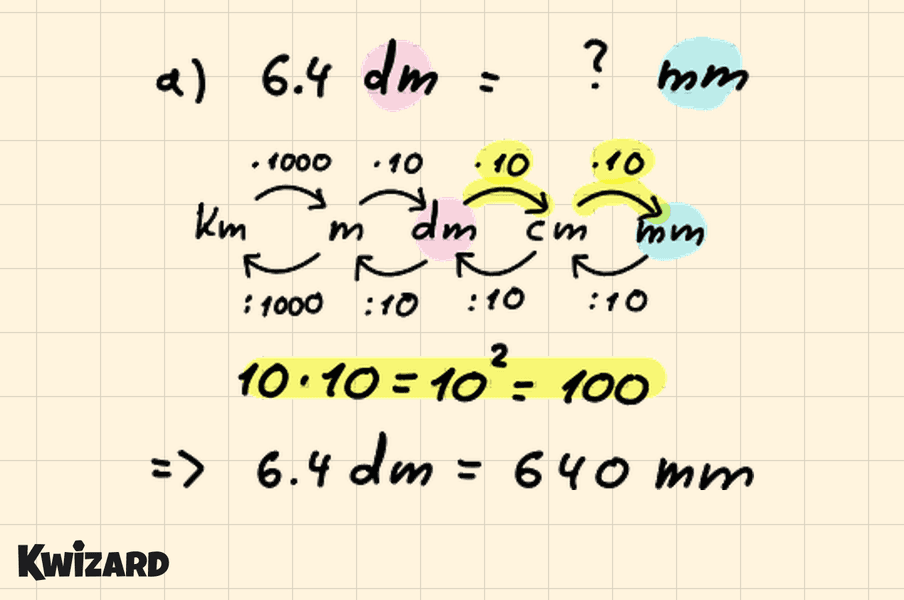 a) 6.4 dm = ? mm
·1000 ·10 ·10 ·10
Km m dm cm mm
:1000 :10 :10 :10
10·10=10²=100
=> 6.4 dm = 640 mm
KWIZARD